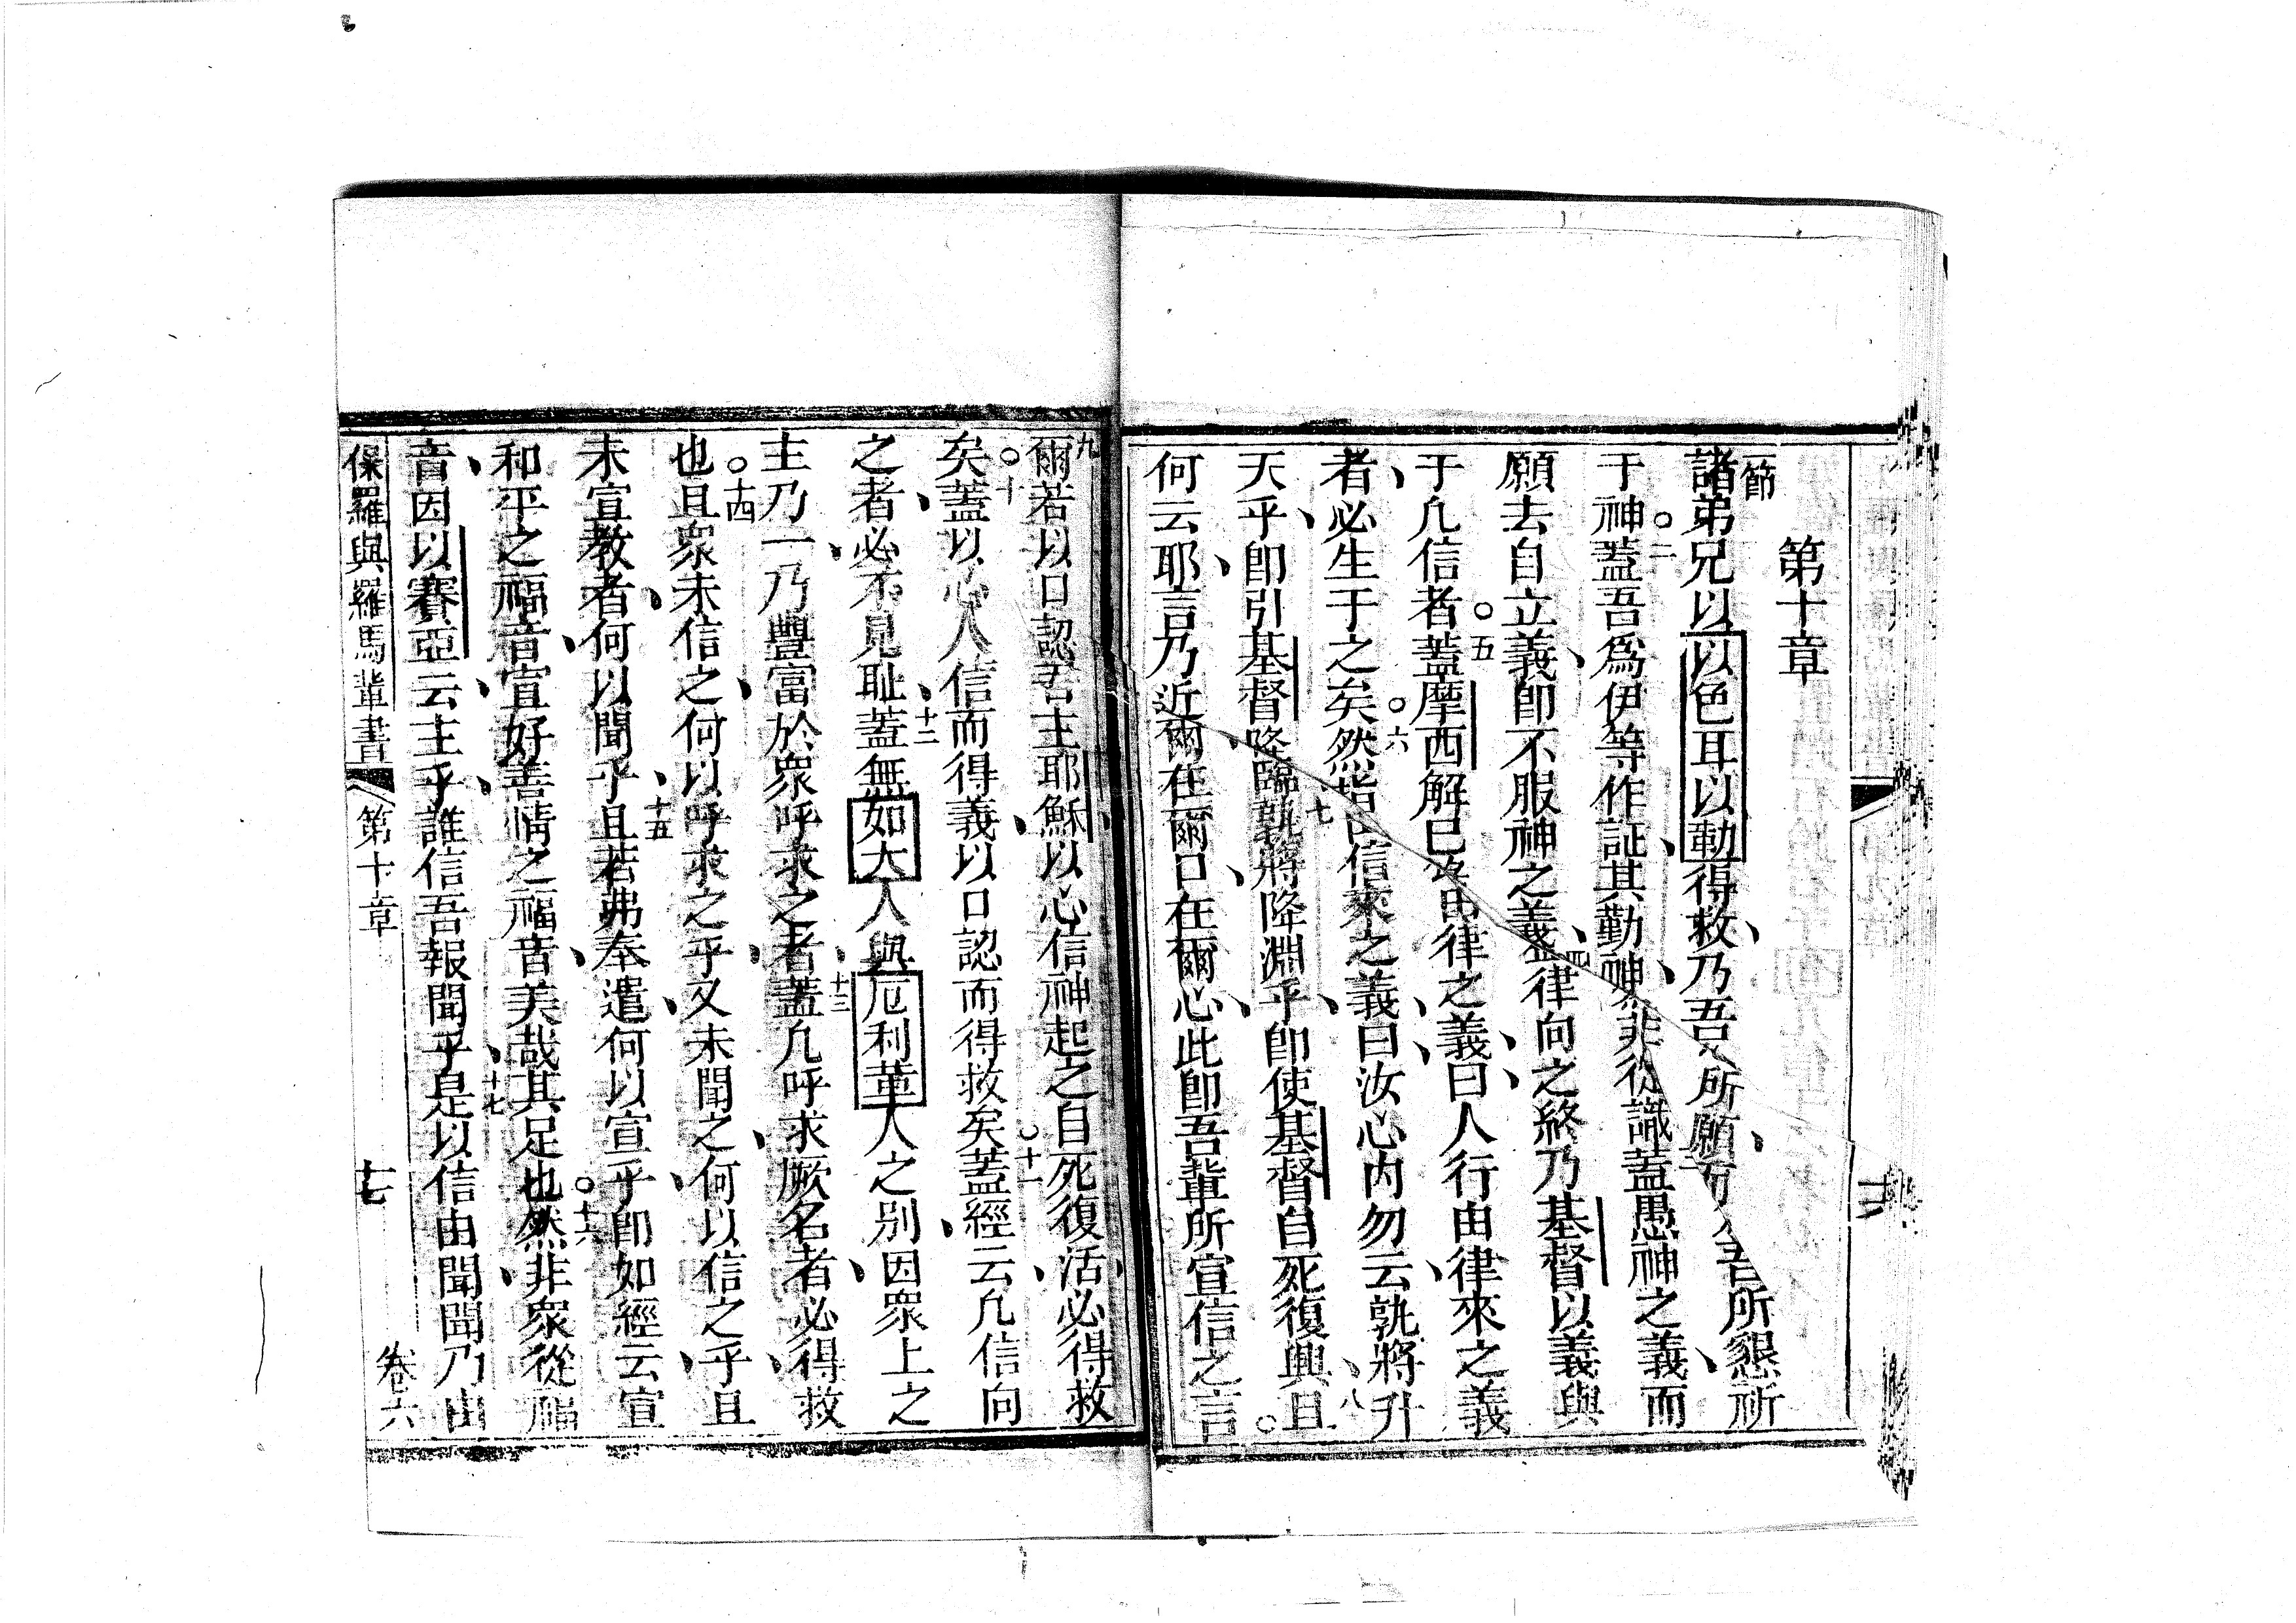 第十章
一節
諸弟兄以以色耳以勒得救乃吾所願乃吾所懇祈
于神○二蓋吾爲伊等作証其勤神非從識蓋愚神之義而
願去自立義即不服神之義四律向之終乃基督以義與
于凡信者○五蓋摩西解由律之義曰人行由律來之義
者必生于之矣○六然指由信來之義曰汝心內勿云孰將升
天乎即引基督降臨七孰將降淵乎即使基督自死復興且八
何云耶言乃近爾在爾口在爾心此即吾輩所宣信之言○
九爾若以口認吾主耶穌以心信神起之自死復活必得救
矣○十蓋以心人信而得義以口認而得救矣○十一蓋經云凡信向
之者必不見恥十二蓋無如大人與厄利革人之別因眾上之
主乃一乃豐富於眾呼求之者十三蓋凡呼求厥名者必得救
也○十四且眾未信之何以呼求之乎又未聞之何以信之乎且
未宣教者何以聞乎十五且若弗奉遣何以宣乎即如經云宣
和平之福音宣好善情之福音美哉其足也○十六然非眾從福
音因以賽亞云主乎誰信吾報聞乎十七是以信由聞聞乃由
保羅與羅馬輩書 第十章 十七 卷六